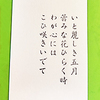 いと麗しき五月
莟みな花ひらく時
わが心には
こひ咲きいでて